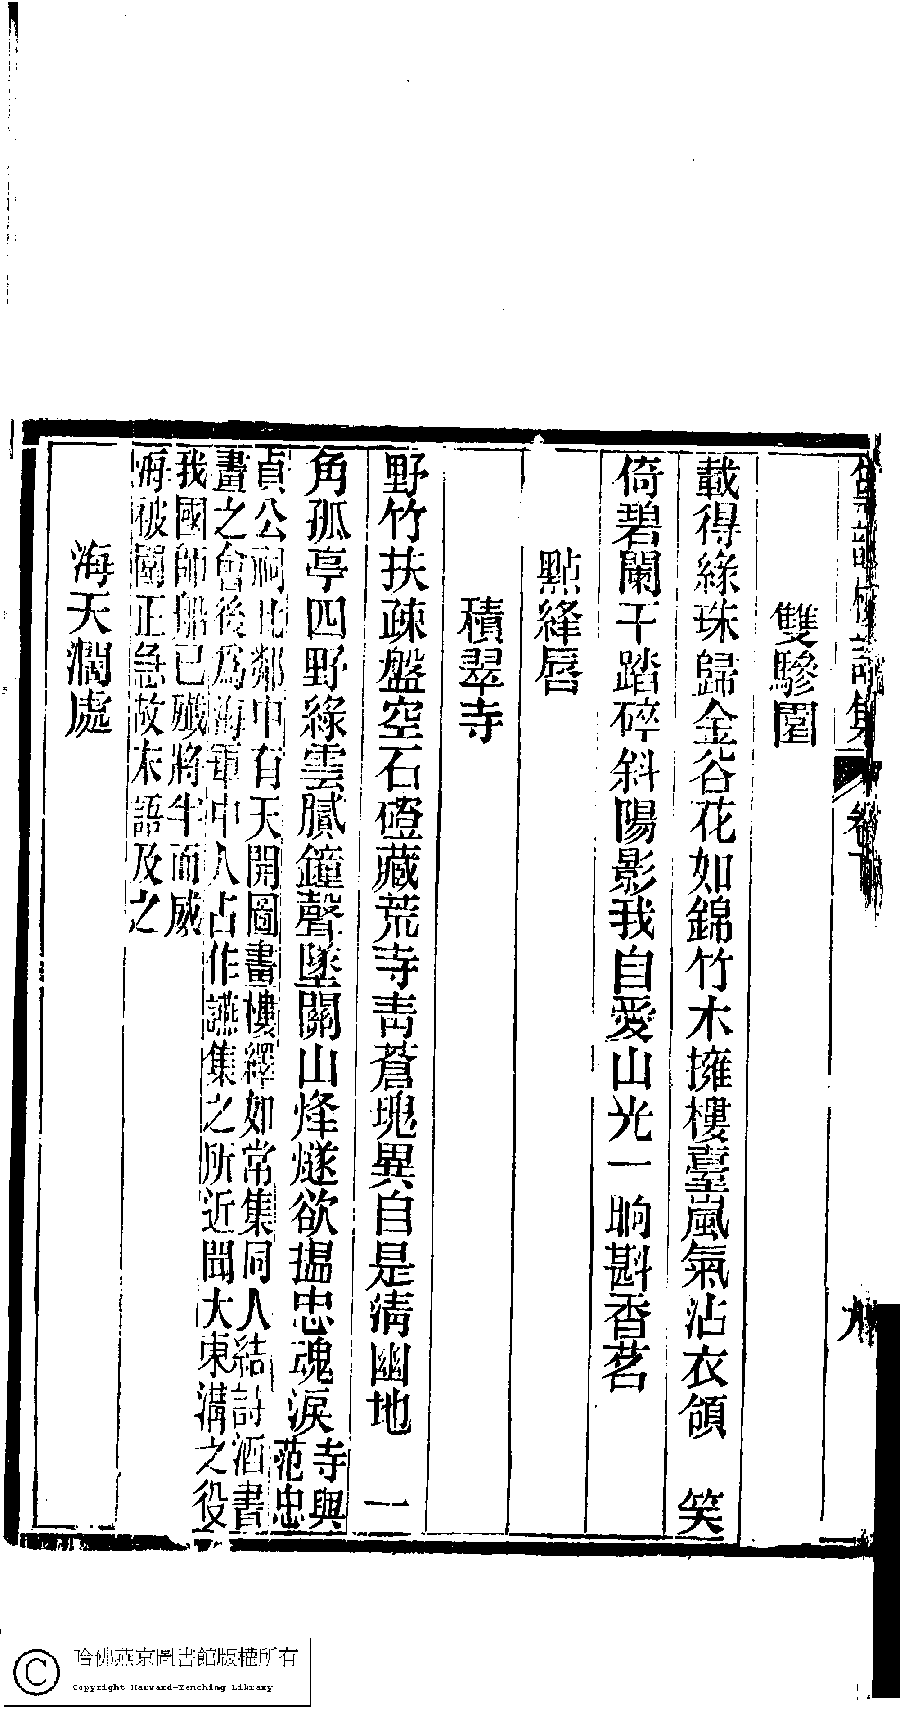 雙驂園
載得綠珠歸金谷花如錦竹木擁樓臺嵐氣沾衣領　笑
倚碧闌干踏碎斜陽影我自愛山光一晌斟香茗
點絳唇
積翠寺
野竹扶疎盤空石磴藏荒寺靑蒼瑰異自是淸幽地　一
角孤亭四野綠雲膩鐘聲墜關山烽燧欲搵忠魂淚寺與
范忠
貞公祠比鄰中有天開圖畫樓繹如常集同人結詩酒書
畫之會後爲海軍中人占作讌集之所近聞大東溝之役
我國師船已殲將半而威
海被圍正急故末語及之
海天濶處
卷下
九
哈佛燕京圖書館版權所有
Copyright Harvard-Yenching Library